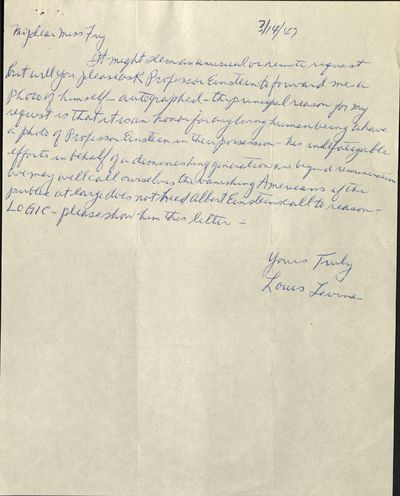 3/14/47
My dear Miss Fry
It might seem an unusual or remote request
but will you please ask Professor Einstein to forward me a
photo of himself - autographed - the principal reason for my
request is that it is an honor for any living human being to have
a photo of Professor Einstein in their possession - his indefatigable
efforts in behalf of a diminishing generation are beyond remuneration
we may well call ourselves the vanishing Americans if the
public at large does not heed Albert Einsteins call to reason -
LOGIC - please show him this letter -
Yours Truly
Louis Levine